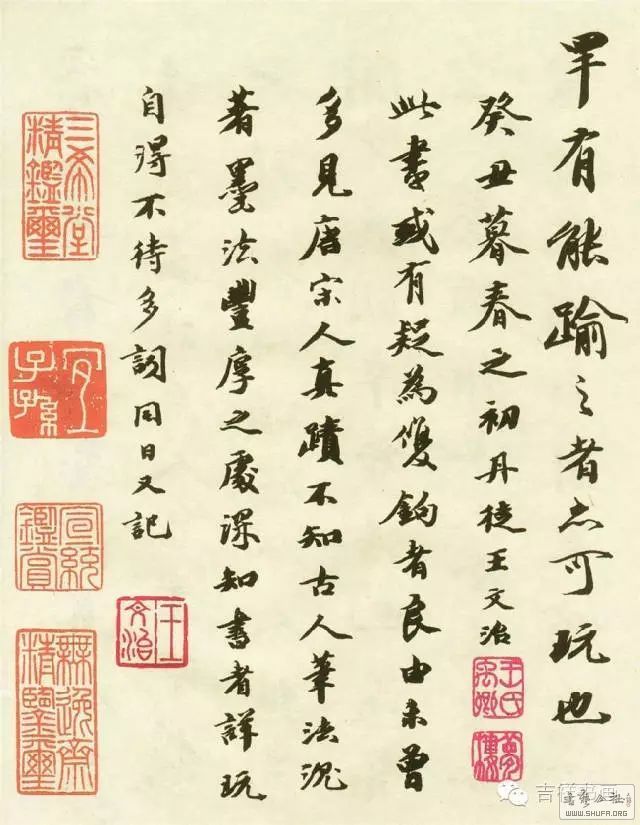 罕有能踰之者亦可玩也
癸丑暮春之初丹徒王文治
王氏禹卿
夢樓
此書或有疑為雙鉤者良由未曾
多見唐宋人真蹟不知古人筆法沉
著墨法豐厚之處深知書者詳玩
自得不待多詞同日又記
王文治
三希堂精鑑璽
宜子孫
宣統鑑賞
無逸齋精鑑璽
吉祥书画
WWW.SHUFA.ORG